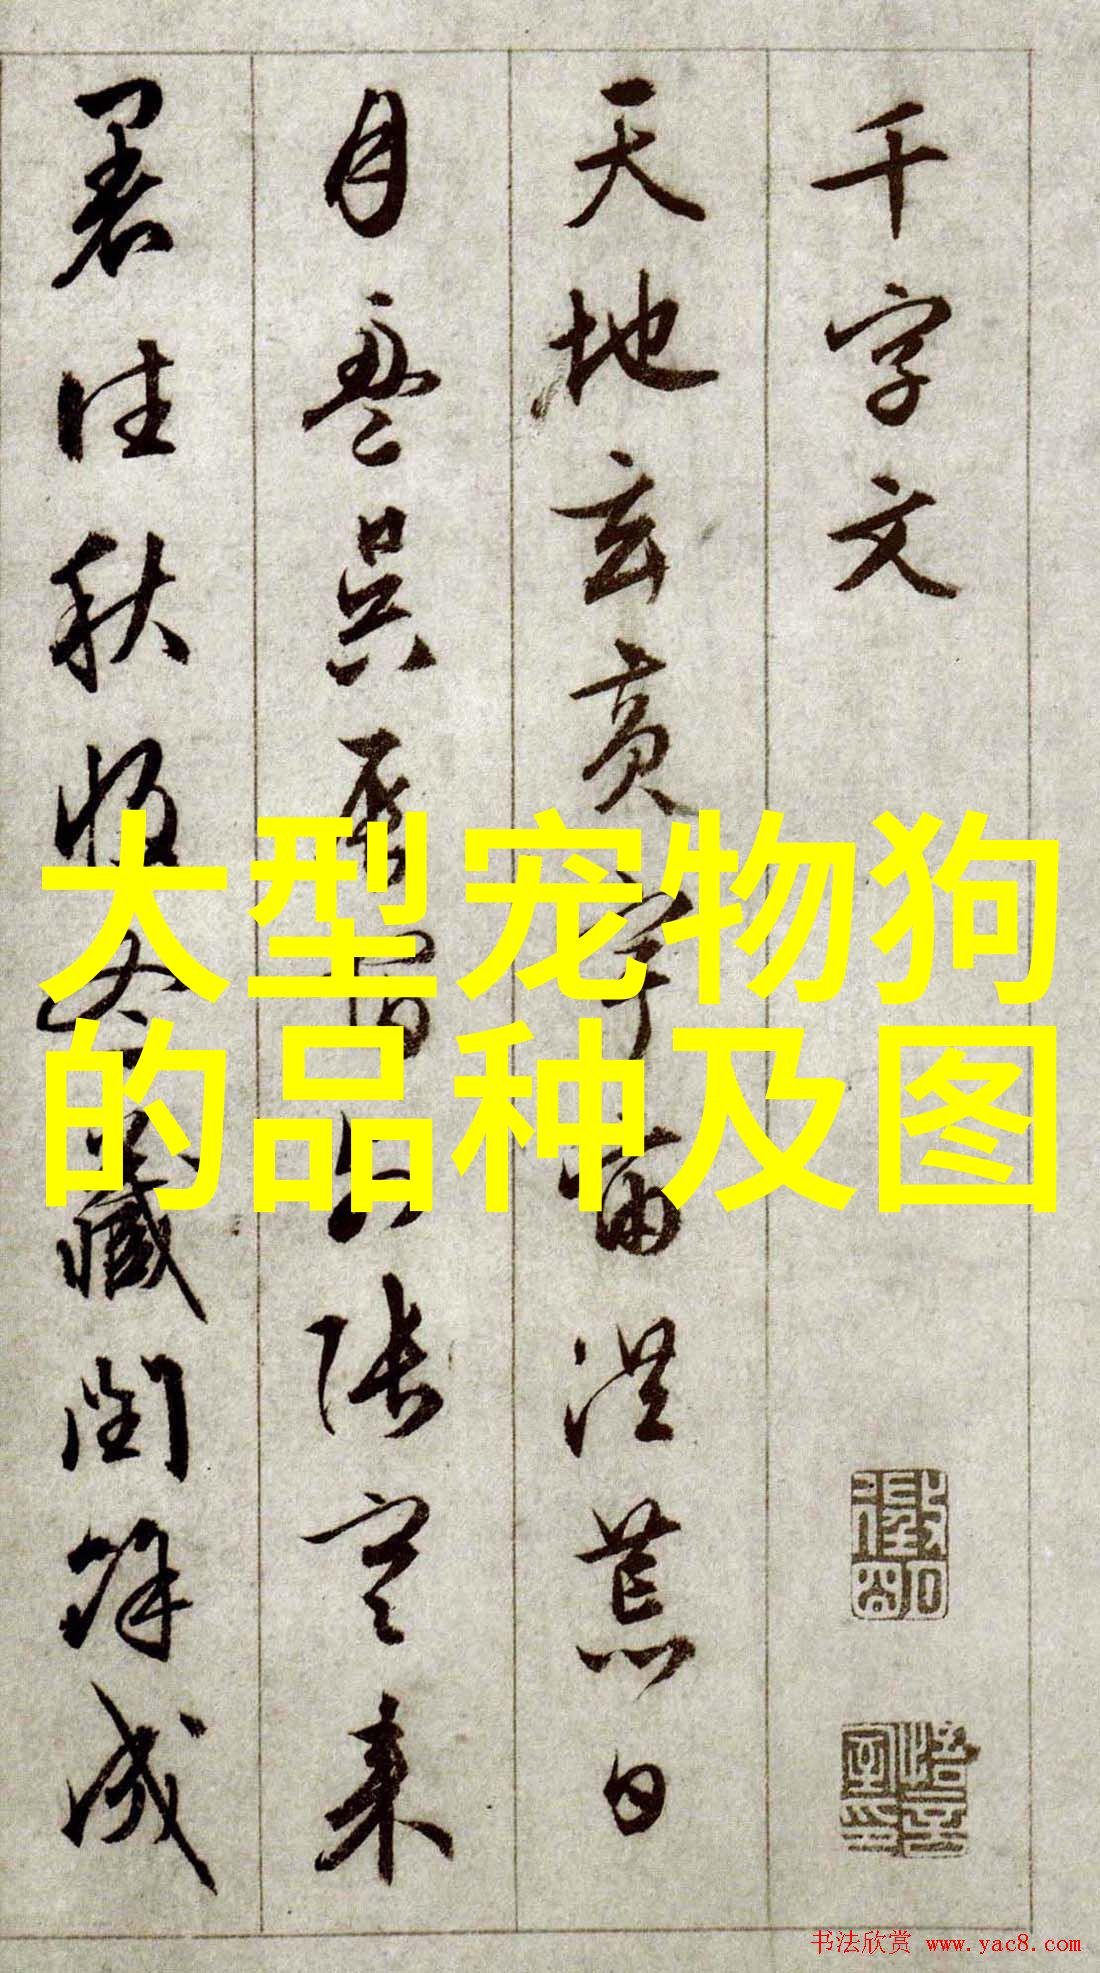 千字文
天地玄黄宇宙洪荒日
月盈昃辰宿列張寒来
暑往秋收冬藏閏餘成
大型宠物狗
的品种及图
书法欣赏 www.yac8.com